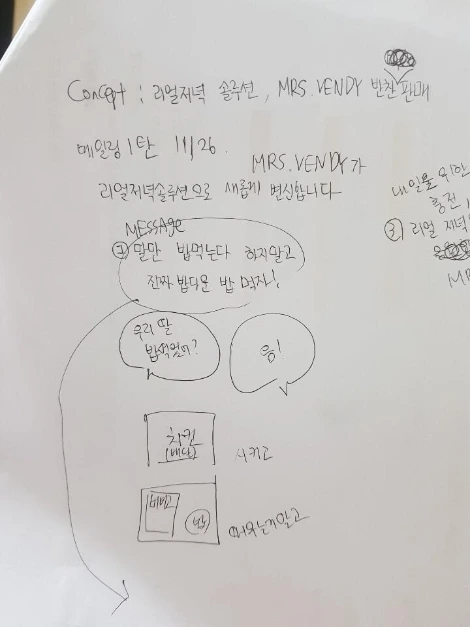 Concept : 리얼저녁 솔루션, MRS. VENDY 반찬 판매
메일링 1탄 11/26.
MRS. VENDY가
리얼저녁솔루션으로 새롭게 변신합니다
MESSAGE
말만 밥먹는다 하지말고
진짜 밥다운 밥 먹자!
우리 딸
밥먹었어?
응!
치킨
(배달)
시키고
비비고
밥
내일을 위한
충전
③ 리얼 저녁